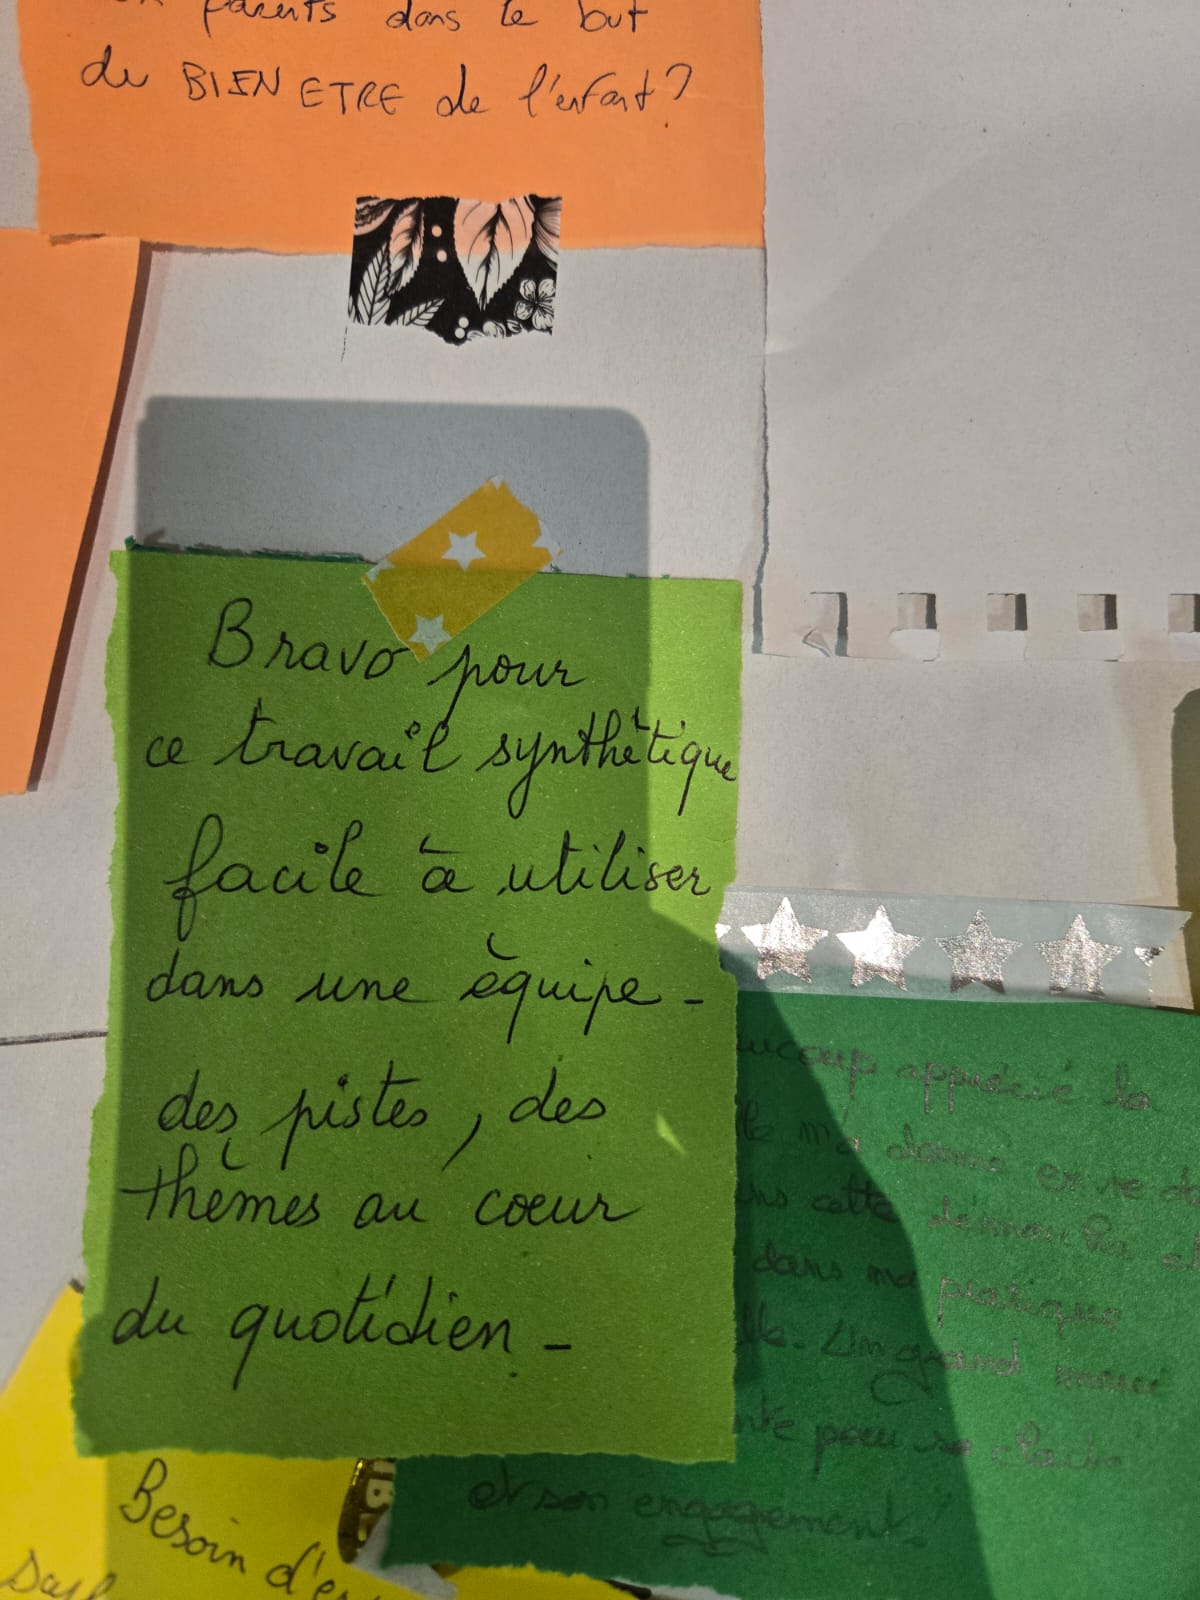 parents dans le but
du BIEN ETRE de l'enfant?
Bravo pour
ce travail synthétique
facile à utiliser
dans une équipe -
des pistes, des
thèmes au coeur
du quotidien -
apprécié la
m'a donné envie de
cette démarche
dans ma pratique
Un grand merci
pour sa clarté
et son engagement!
Besoin